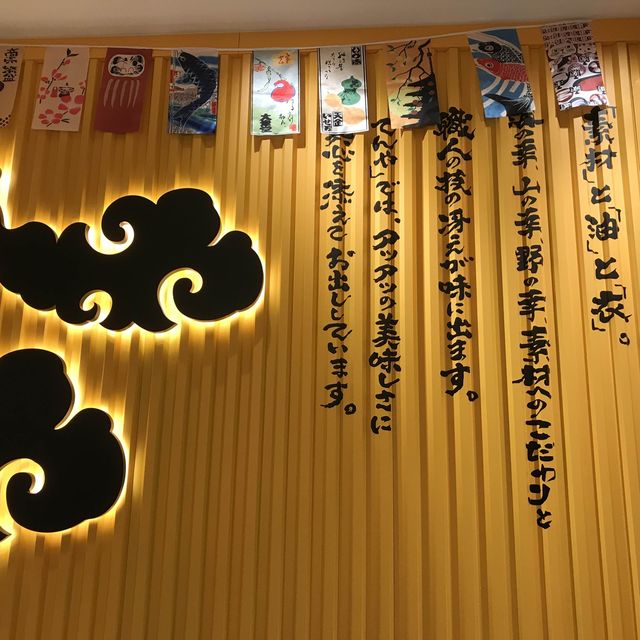 「素材」と「油」と「衣」。
海の幸、山の幸、野の幸、素材へのこだわりと
職人の技の冴えが味に出ます。
「てんや」では、アツアツの美味しさに
心を添えてお出ししています。